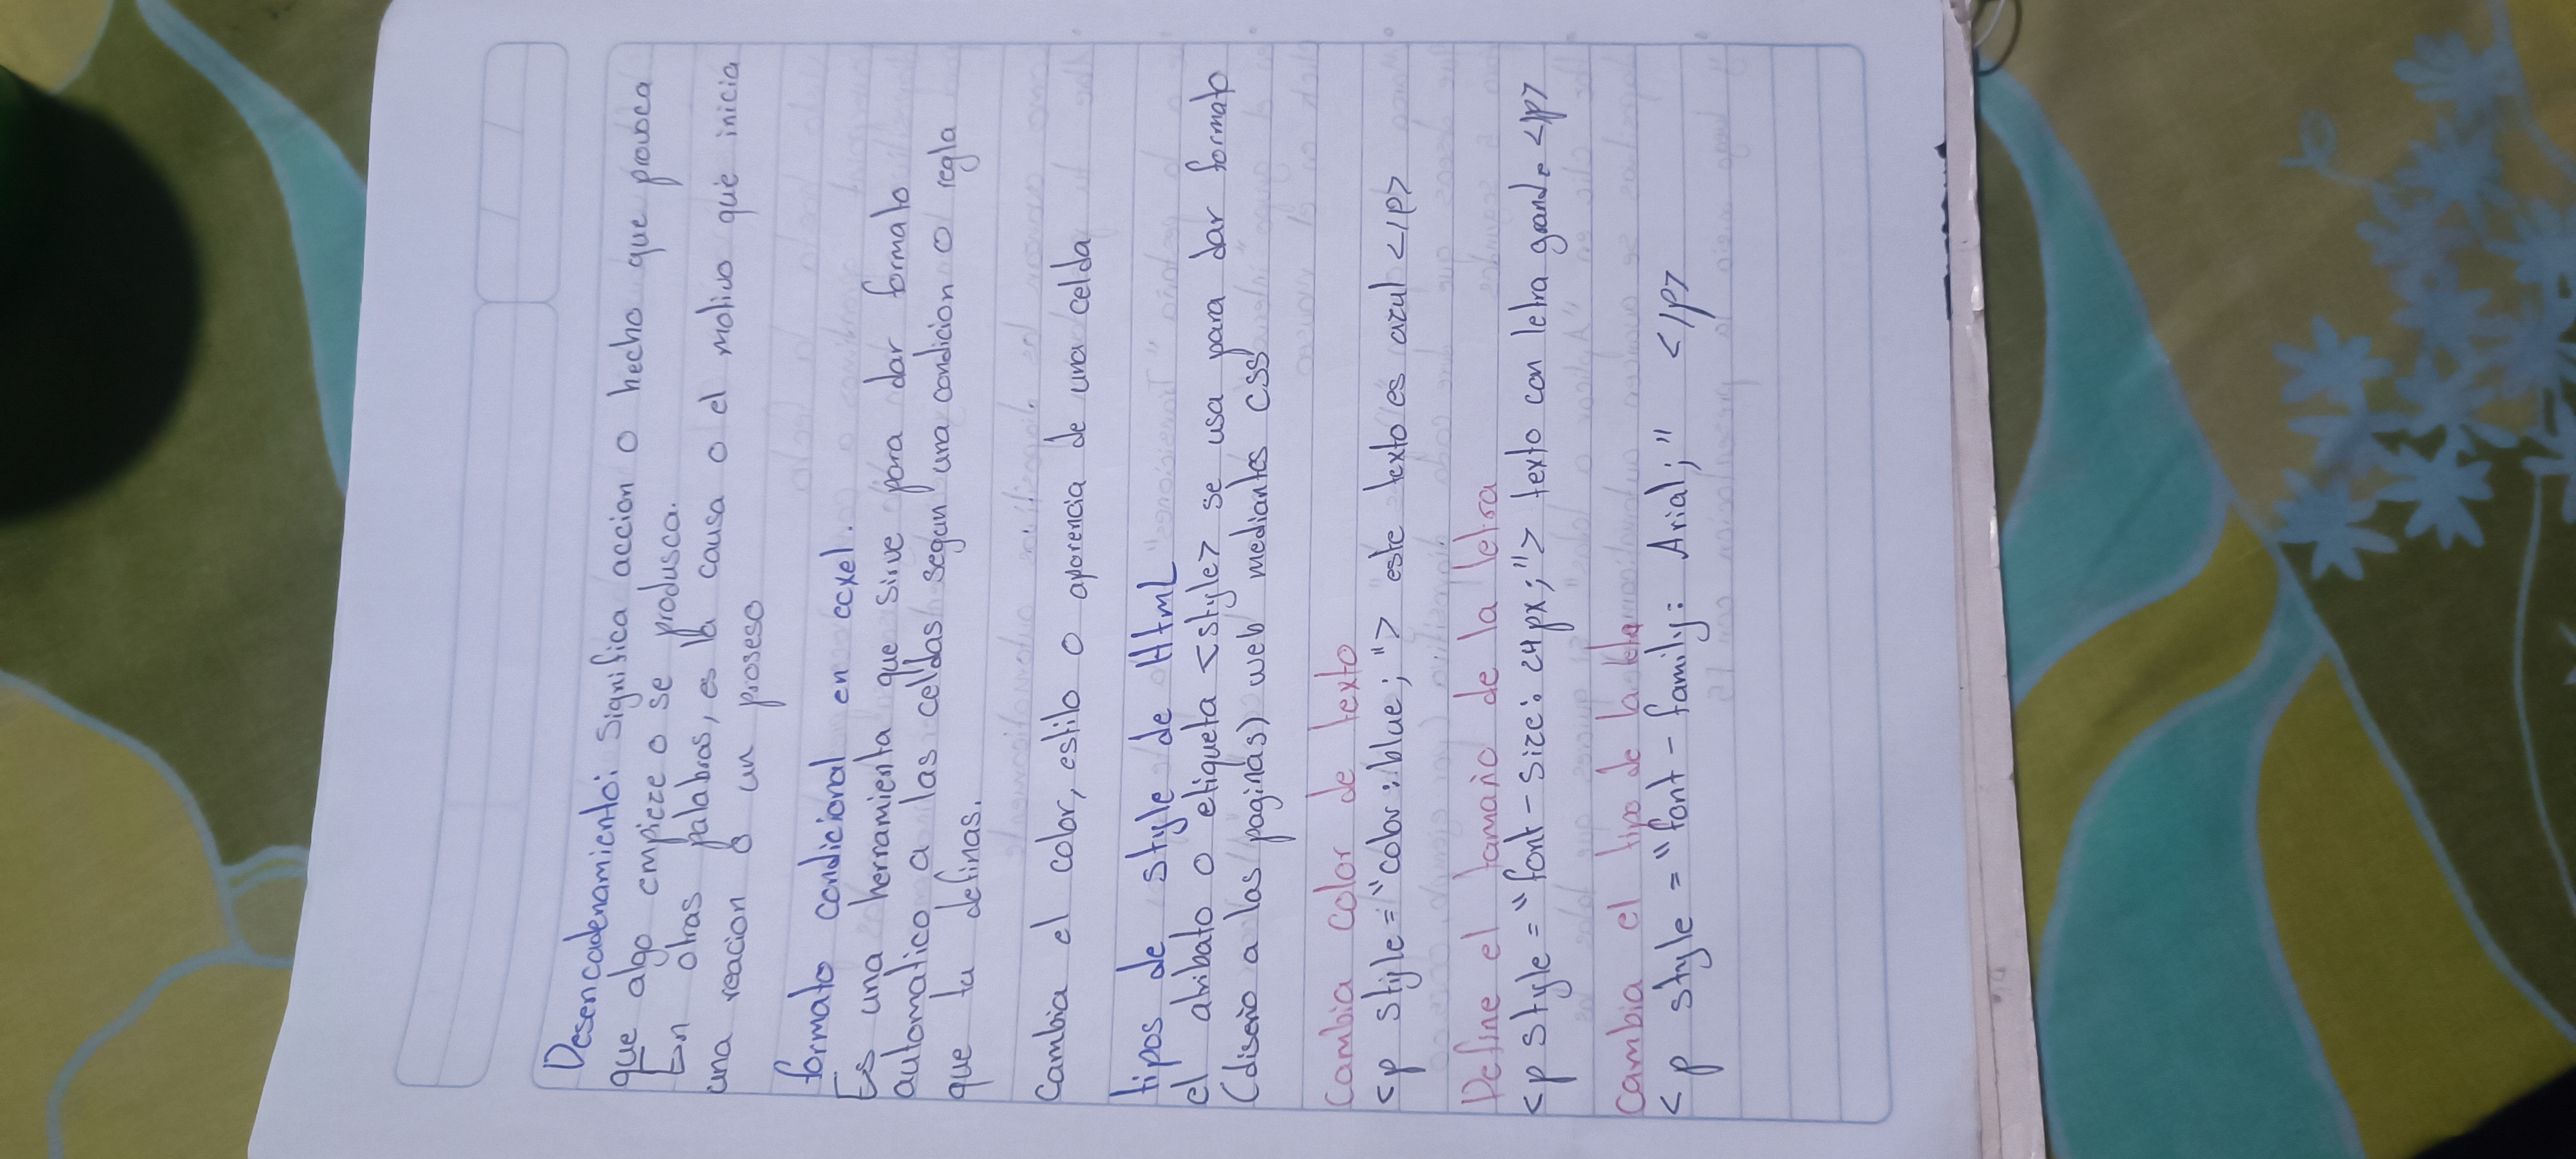 Desencadenamiento: Significa accion o hecho que prouoca
que algo empieze o se produsca.
En otras palabras, es la causa o el motivo que inicia
una reacion o un proseso
formato condicional en ecxel.
Es una herramienta que sirve para dar formato
automatico a las celdas segun una condicion o regla
que tu definas.
Cambia el color, estilo o aparencia de una celda
tipos de style de HtmL
el atribato o etiqueta <style> se usa para dar formato
(diseño a las paginas) web mediantes css
Cambia color de texto
<p style="color: blue;"> este texto es azul </p>
Define el tamaño de la letra
<p style="font-size: 24px;"> texto con letra grande </p>
Cambia el tipo de la letra
<p style="font-family: Arial;" </p>